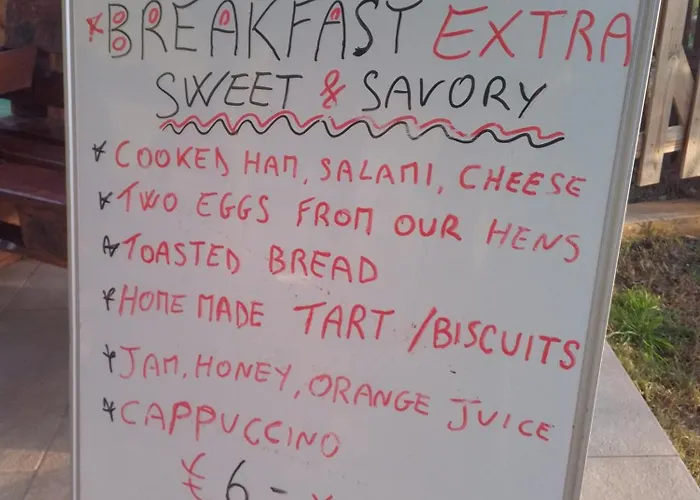 *BREAKFAST EXTRA
SWEET & SAVORY
* COOKED HAM, SALAMI, CHEESE
* TWO EGGS FROM OUR HENS
* TOASTED BREAD
* HOME MADE TART /BISCUITS
* JAM, HONEY, ORANGE JUICE
* CAPPUCCINO
€ 6 -